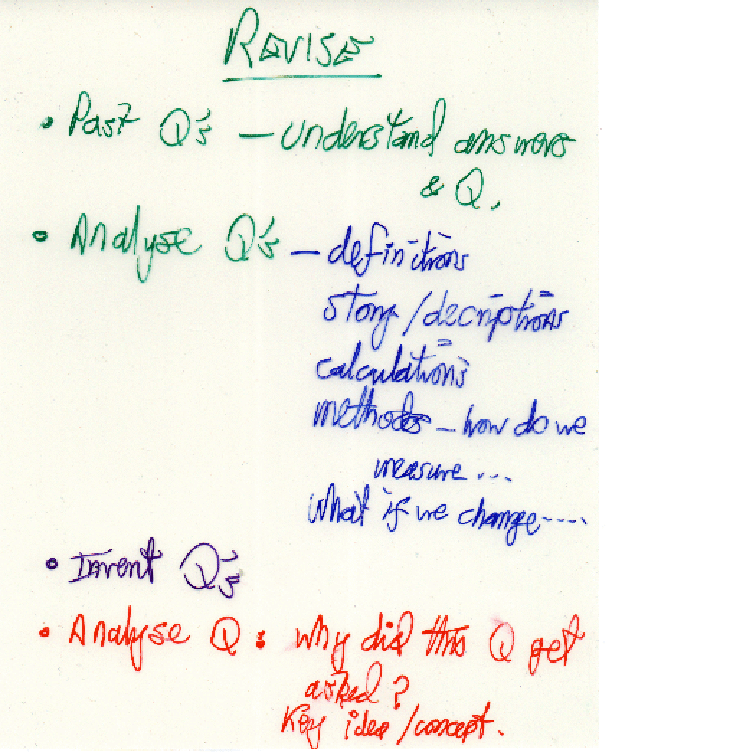 Revise
• Past Q's – understand answers
& Q.
• Analyse Q's – definitions
story/decriptions
calculations
methods – how do we
measure ...
What if we change.....
• Invent Q's
• Analyse Q : why did this Q get
asked?
Key idea/concept.